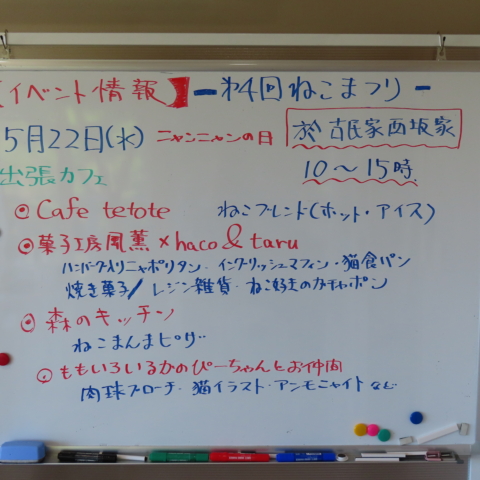 【イベント情報】 ー第4回ねこまつりー
5月22日(水) ニャンニャンの日 於 古民家西坂家
10〜15時
出張カフェ
Cafe tetote ねこブレンド(ホット・アイス)
菓子工房風薫×haco&taru
ハンバーグ入りニャポリタン・イングリッシュマフィン・猫食パン
焼き菓子/レジン雑貨・ねこ好きのガチャポン
森のキッチン
ねこまんまピザ
ももいろいるかのぴーちゃんとお仲間
肉球ブローチ・猫イラスト・アンモニャイトなど